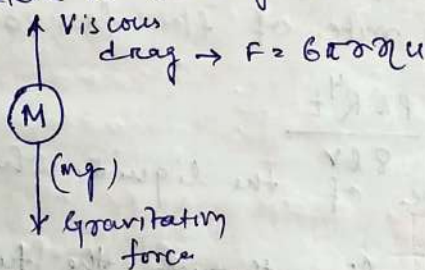 Viscous
drag → F = 6πrηu
M
(mg)
Gravitation
force